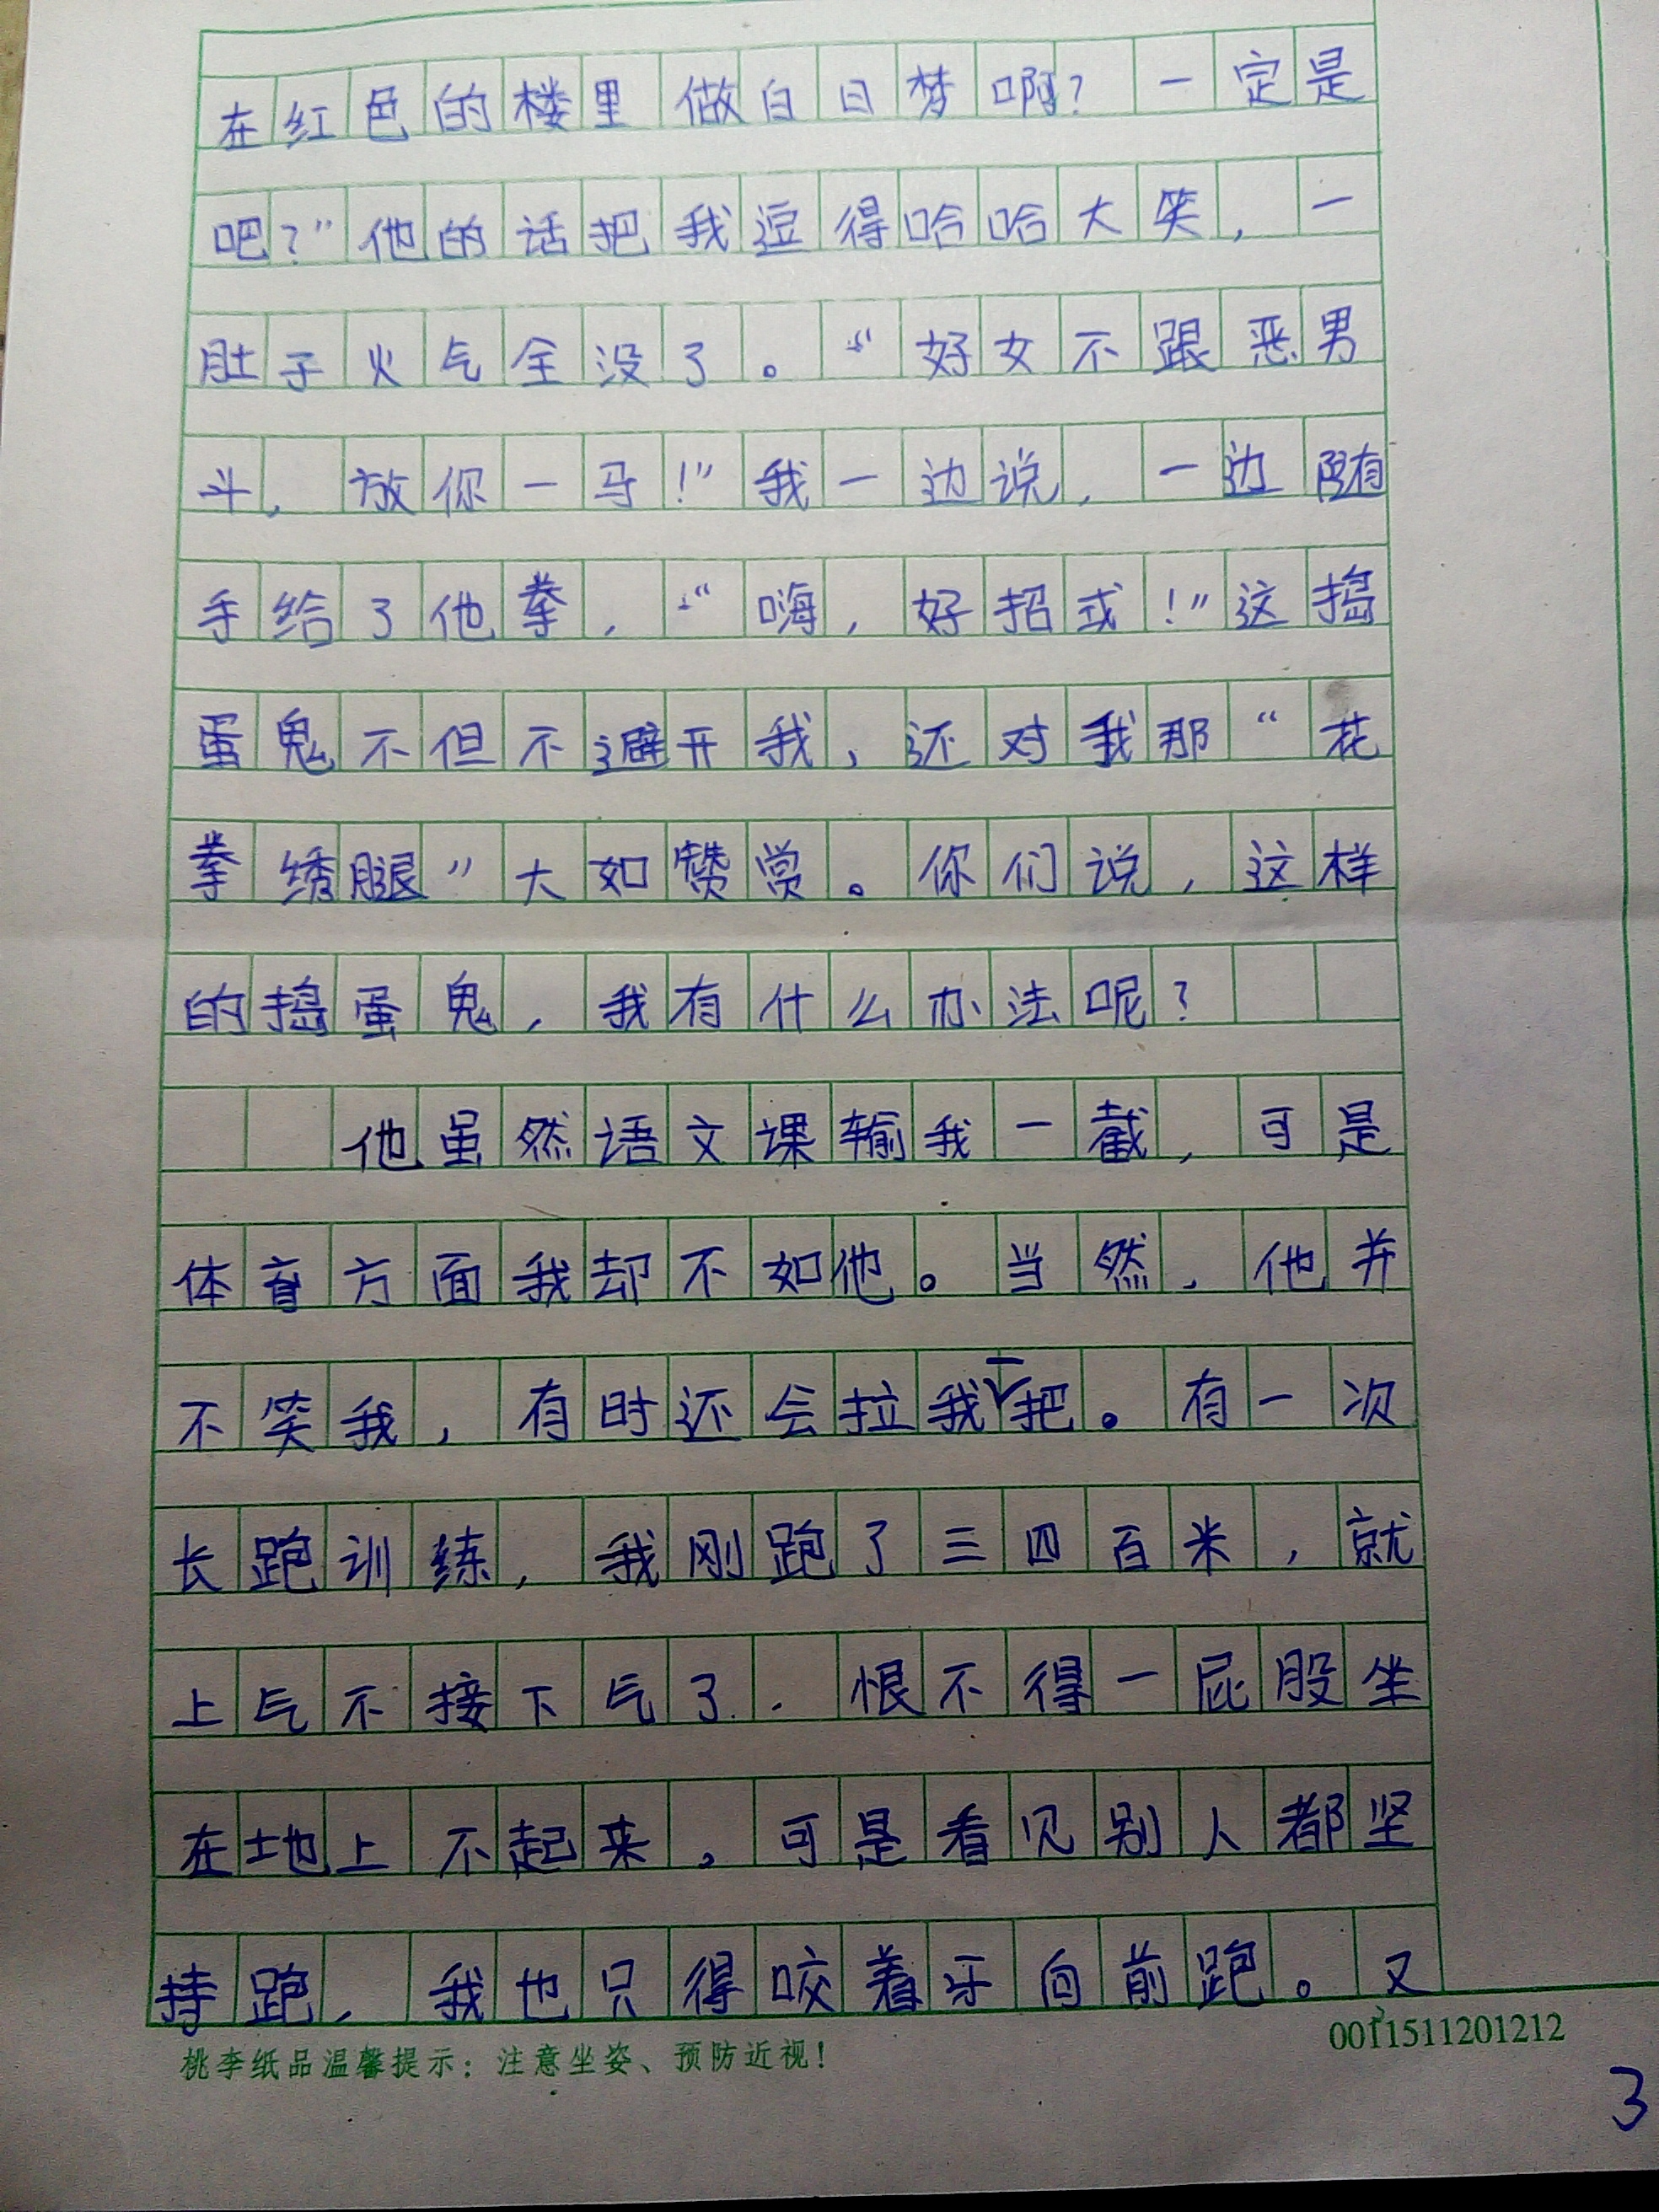 在红色的楼里做白日梦啊？一定是
吧？”他的话把我逗得哈哈大笑，一
肚子火气全没了。“好女不跟恶男
斗，放你一马！”我一边说，一边随
手给了他拳，“嗨，好招或！”这捣
蛋鬼不但不避开我，还对我那“花
拳绣腿”大如赞赏。你们说，这样
的捣蛋鬼，我有什么办法呢？
他虽然语文课输我一截，可是
体育方面我却不如他。当然，他并
不笑我，有时还会拉我一把。有一次
长跑训练，我刚跑了三四百米，就
上气不接下气了．恨不得一屁股坐
在地上不起来，可是看见别人都坚
持跑，我也只得咬着牙向前跑。又
桃李纸品温馨提示：注意坐姿、预防近视！
0011511201212
3